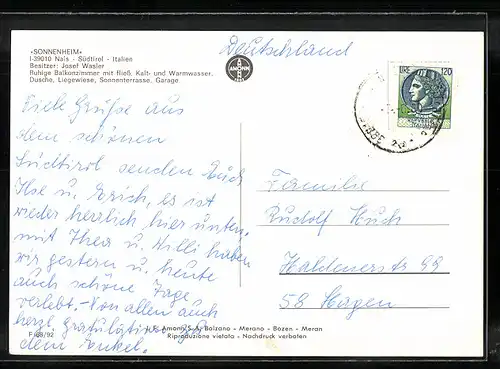 «SONNENHEIM»
I-39010 Nals - Südtirol - Italien
Besitzer: Josef Wasler
Ruhige Balkonzimmer mit fließ. Kalt- und Warmwasser.
Dusche, Liegewiese, Sonnenterrasse, Garage.
Deutschland
AMONN
LIRE 120
Viele Grüße aus
dem schönen
Südtirol senden Euch
Ilse u. Erich, es ist
wieder herrlich hier unten,
mit Thea u. Willi haben
wir gestern u. heute
auch schöne Tage
verlebt. - Von allen auch
herzl. Gratulation
dem Enkel.
Familie
Rudolf Huch
Haldenerstr. 99
58 Hagen
F. Amonn S. A. Bolzano - Merano - Bozen - Meran
Riproduzione vietata - Nachdruck verboten